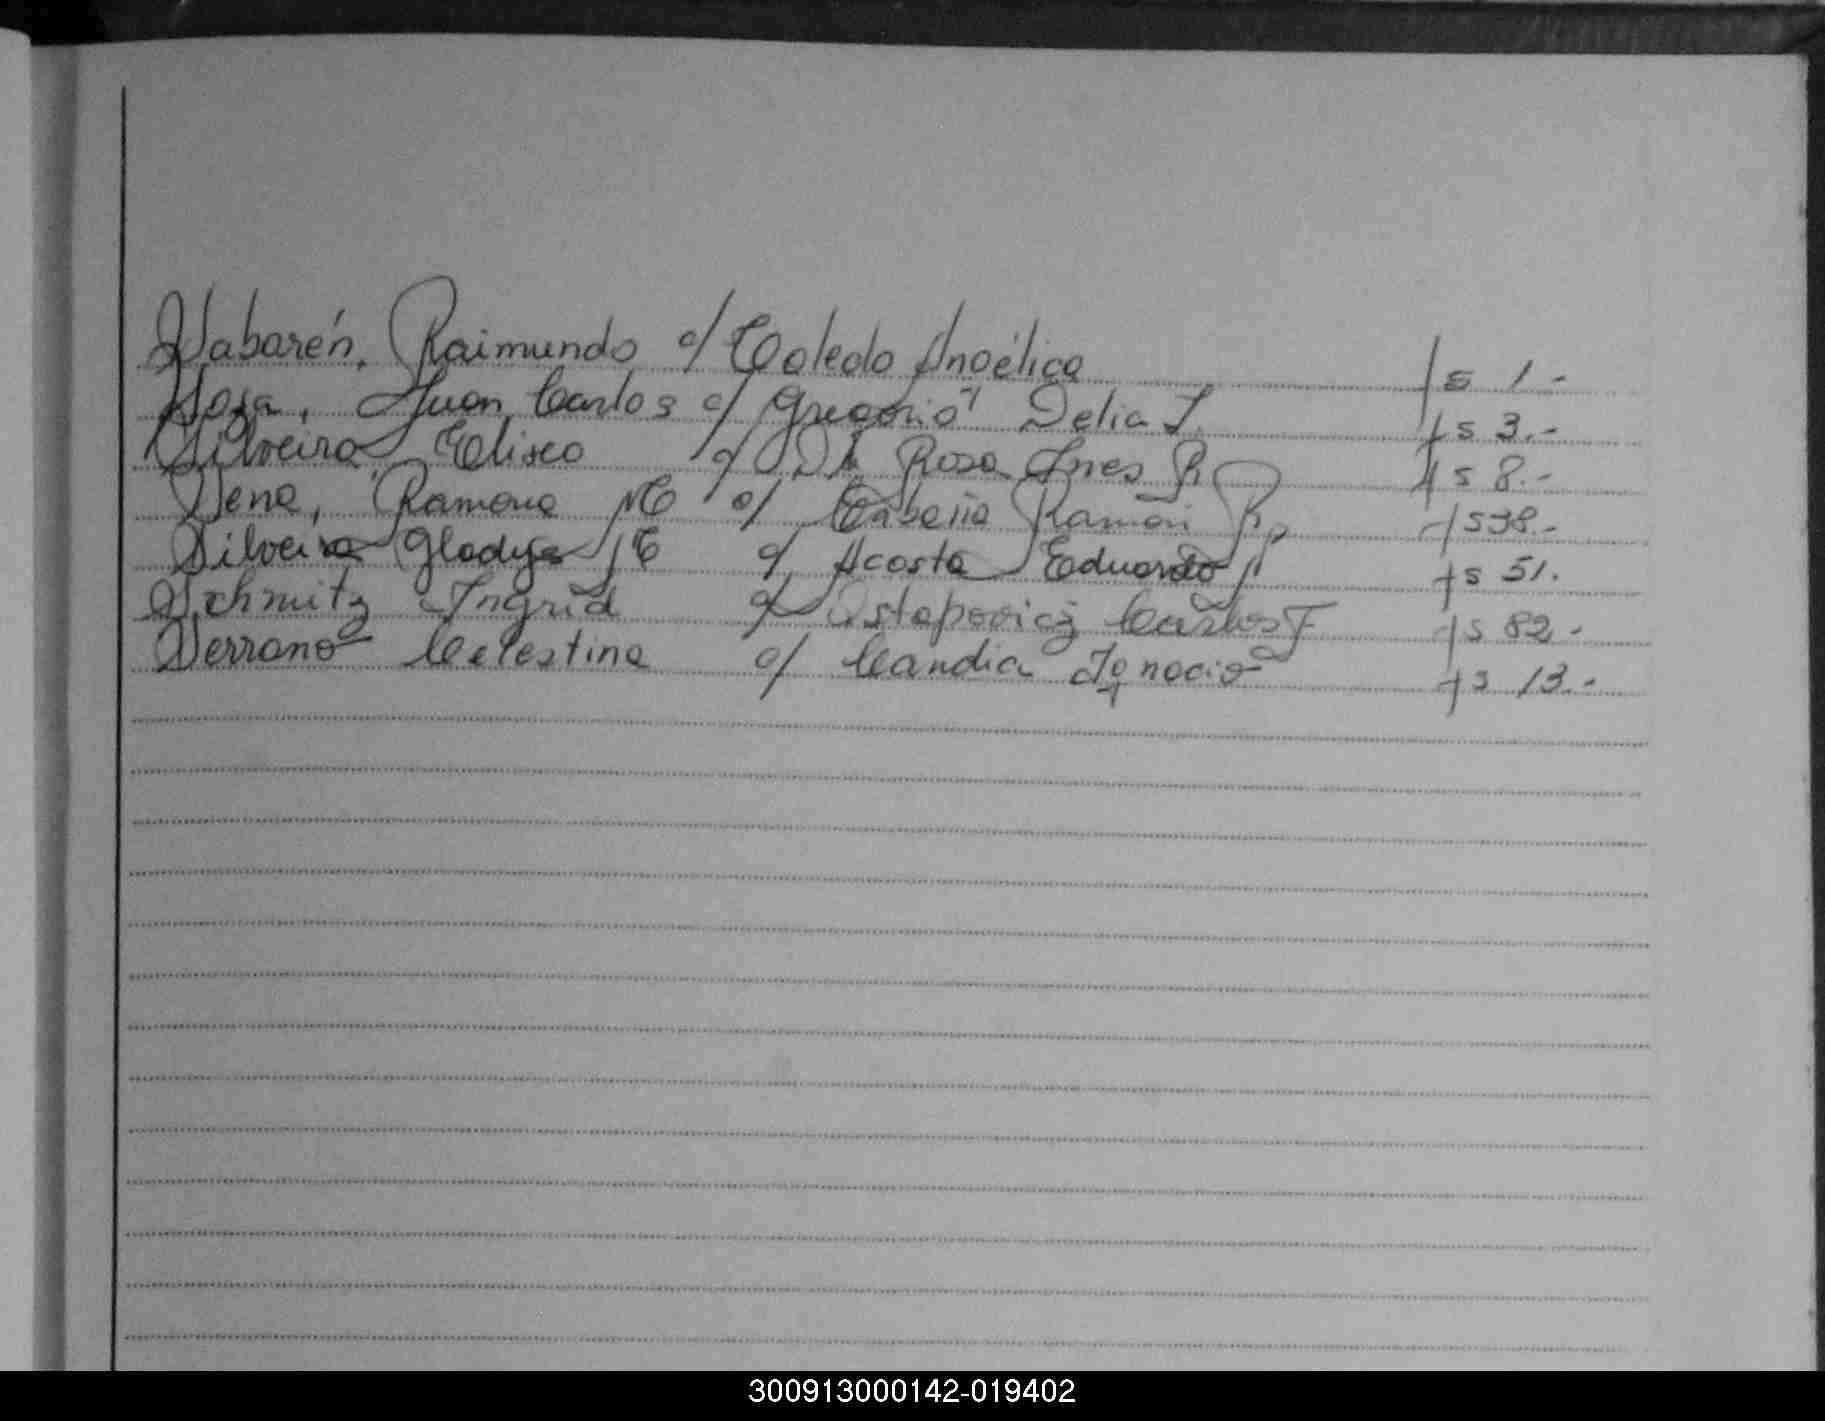 Sabarén, Raimundo c/ Toledo Angélica fs 1.-
Sosa, Juan Carlos c/ Gregorio Delia I. fs 3.-
Silveira Eliseo c/ Da Rosa Ines R. fs 8.-
Sena, Ramona M c/ Cabaña Ramón fs 38.-
Silveira Gladys E c/ Acosta Eduardo fs 51.
Schmitz Ingrid c/ Ostapovicz Carlos F fs 82.-
Serrano Celestina c/ Candia Ignacio fs 13.-
300913000142-019402